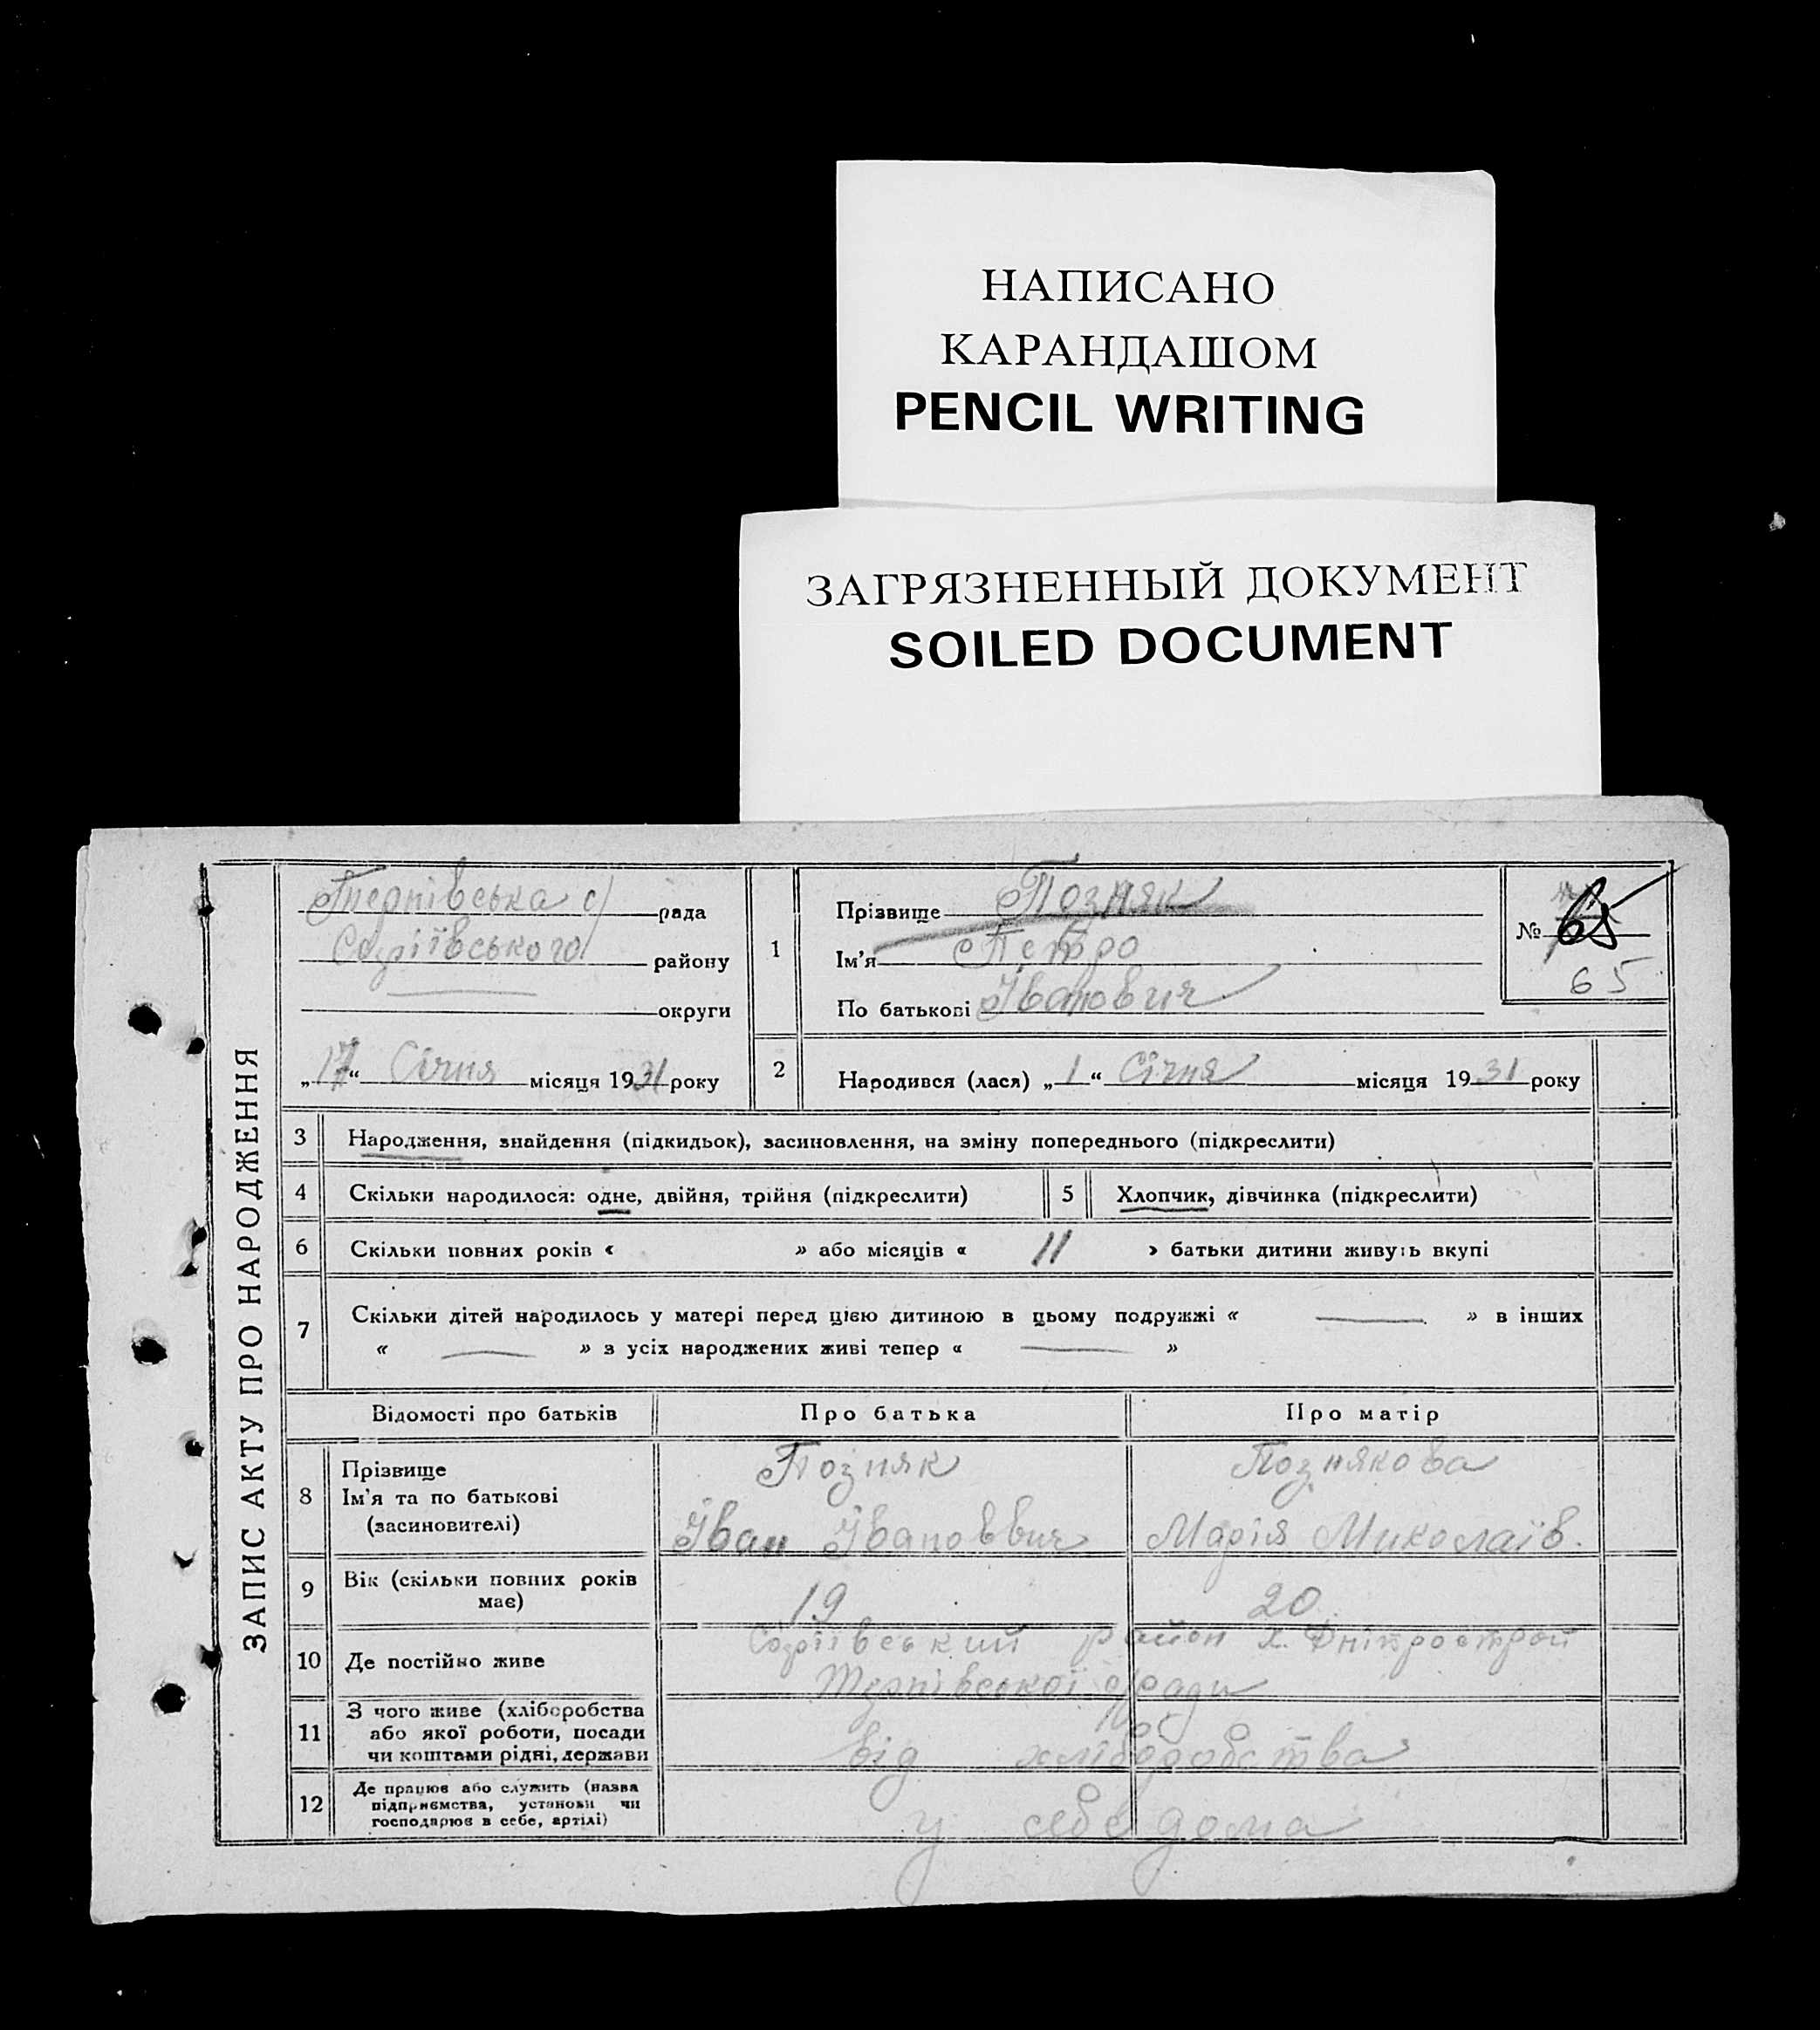 НАПИСАНО
КАРАНДАШОМ
PENCIL WRITING
ЗАГРЯЗНЕННЫЙ ДОКУМЕНТ
SOILED DOCUMENT
ЗАПИС АКТУ ПРО НАРОДЖЕННЯ
с/рада
району
округи
„17“ Січня місяця 1931 року
1
Прізвище Позняк
Ім'я Петро
По батькові Іванович
№ 65
65
2
Народився (лася) „1“ Січня місяця 1931 року
3 Народження, знайдення (підкидьок), засиновлення, на зміну попереднього (підкреслити)
4 Скільки народилося: одне, двійня, трійня (підкреслити) 5 Хлопчик, дівчинка (підкреслити)
6 Скільки повних років « » або місяців « 11 » батьки дитини живуть вкупі
7 Скільки дітей народилось у матері перед цією дитиною в цьому подружжі « — » в інших
« — » з усіх народжених живі тепер « — »
Відомості про батьків Про батька Про матір
8 Прізвище Позняк Познякова
Ім'я та по батькові
(засиновителі) Іван Івановвич Марія Миколаїв.
9 Вік (скільки повних років
має) 19 20
район х. Дніпрострой
10 Де постійно живе
Тернівської с/ради
11 З чого живе (хліборобства
або якої роботи, посади
чи коштами рідні, держави від хліборобства
12 Де працює або служить (назва
підприємства, установи чи
господарює в себе, артілі) у себе дома